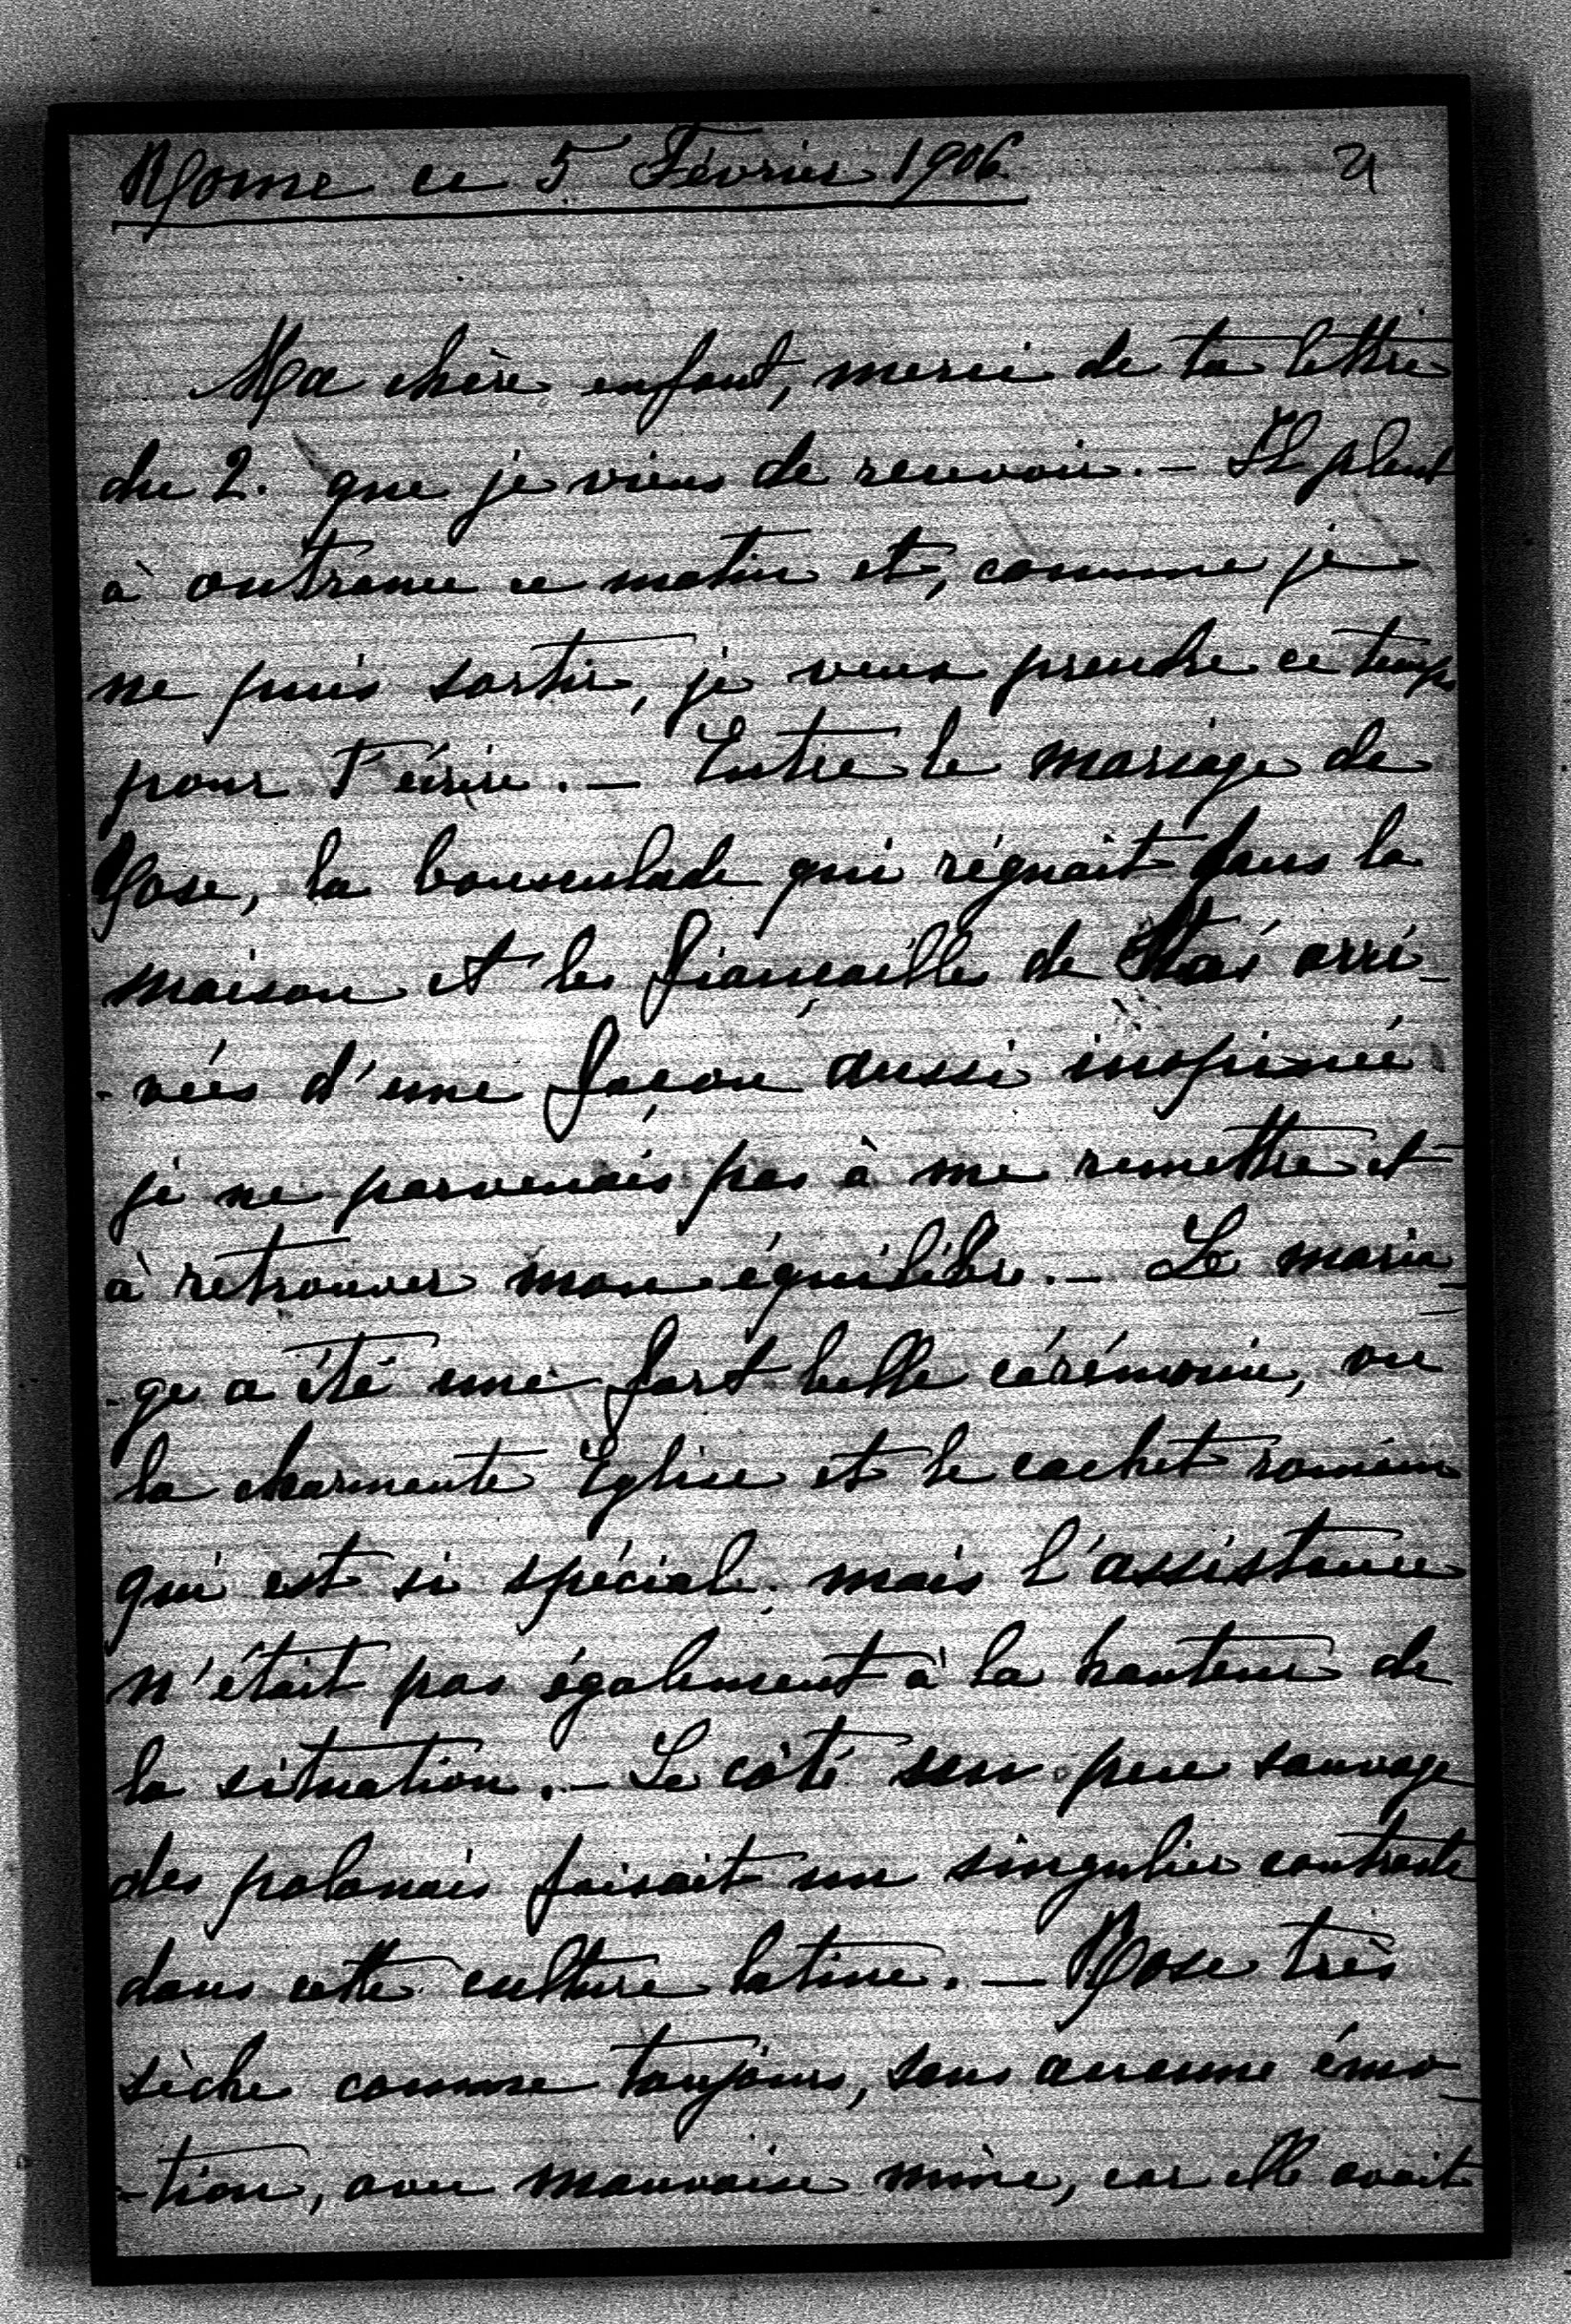 Rome ce 5 Février 1906. 21
Ma chère enfant, merci de ta lettre
du 2. que je viens de recevoir. – Il pleut
à outrance ce matin et, comme je
ne puis sortir, je veux prendre ce temps
pour t'écrire. – Entre le mariage de
Rose, la bousculade qui régnait dans la
maison et les fiançailles de Staś arri-
-vées d'une façon aussi inopinée
je ne parvenais pas à me remettre et
à retrouver mon équilibre. – Le maria-
-ge a été une fort belle cérémonie, vu
la charmante Eglise et le cachet romain
qui est si spécial; mais l'assistance
n'était pas également à la hauteur de
la situation. – Le côté un peu sauvage
des polonais faisait un singulier contraste
dans cette culture latine. – Rose très
sèche comme toujours, sans aucune émo-
-tion, avec mauvaise mine, car elle avait